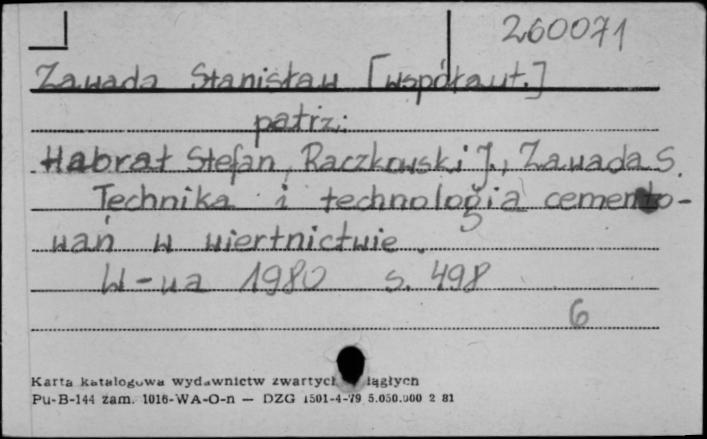 260071
Zawada Stanisław [współaut.]
patrz:
Habrat Stefan, Raczkowski J., Zawada S.
Technika i technologia cemento-
wań w wiertnictwie.
W-wa 1980 s. 498
6
Karta katalogowa wydawnictw zwartych ciągłych
Pu-B-144 zam. 1016-WA-O-n — DZG 1501-4-79 5.050.000 2 81